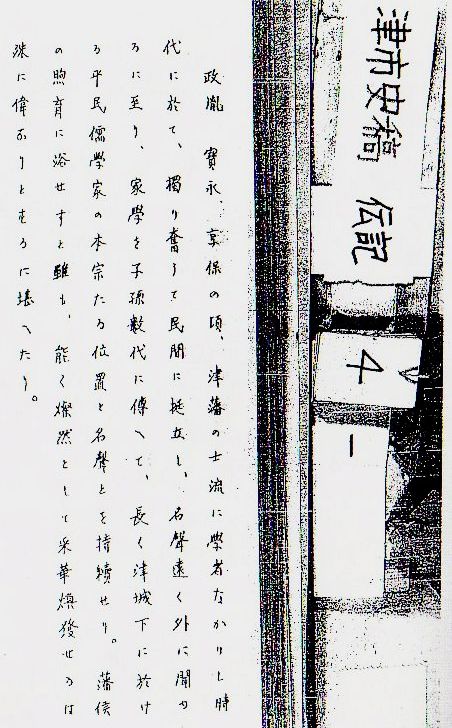 津市史稿 伝記
4
一
政胤 寶永、享保の頃、津藩の士流に學者なかりし時
代に於て、獨り奮うて民間に挺立し、名聲遠く外に聞ゆ
るに至り、家學を子孫數代に傳へて、長く津城下に於け
る平民儒學家の本宗たる位置と名聲とを持續せり。藩侯
の煦育に浴せずと雖も、能く燦然として采華煥發せるは
洵に偉なりとするに堪へたり。